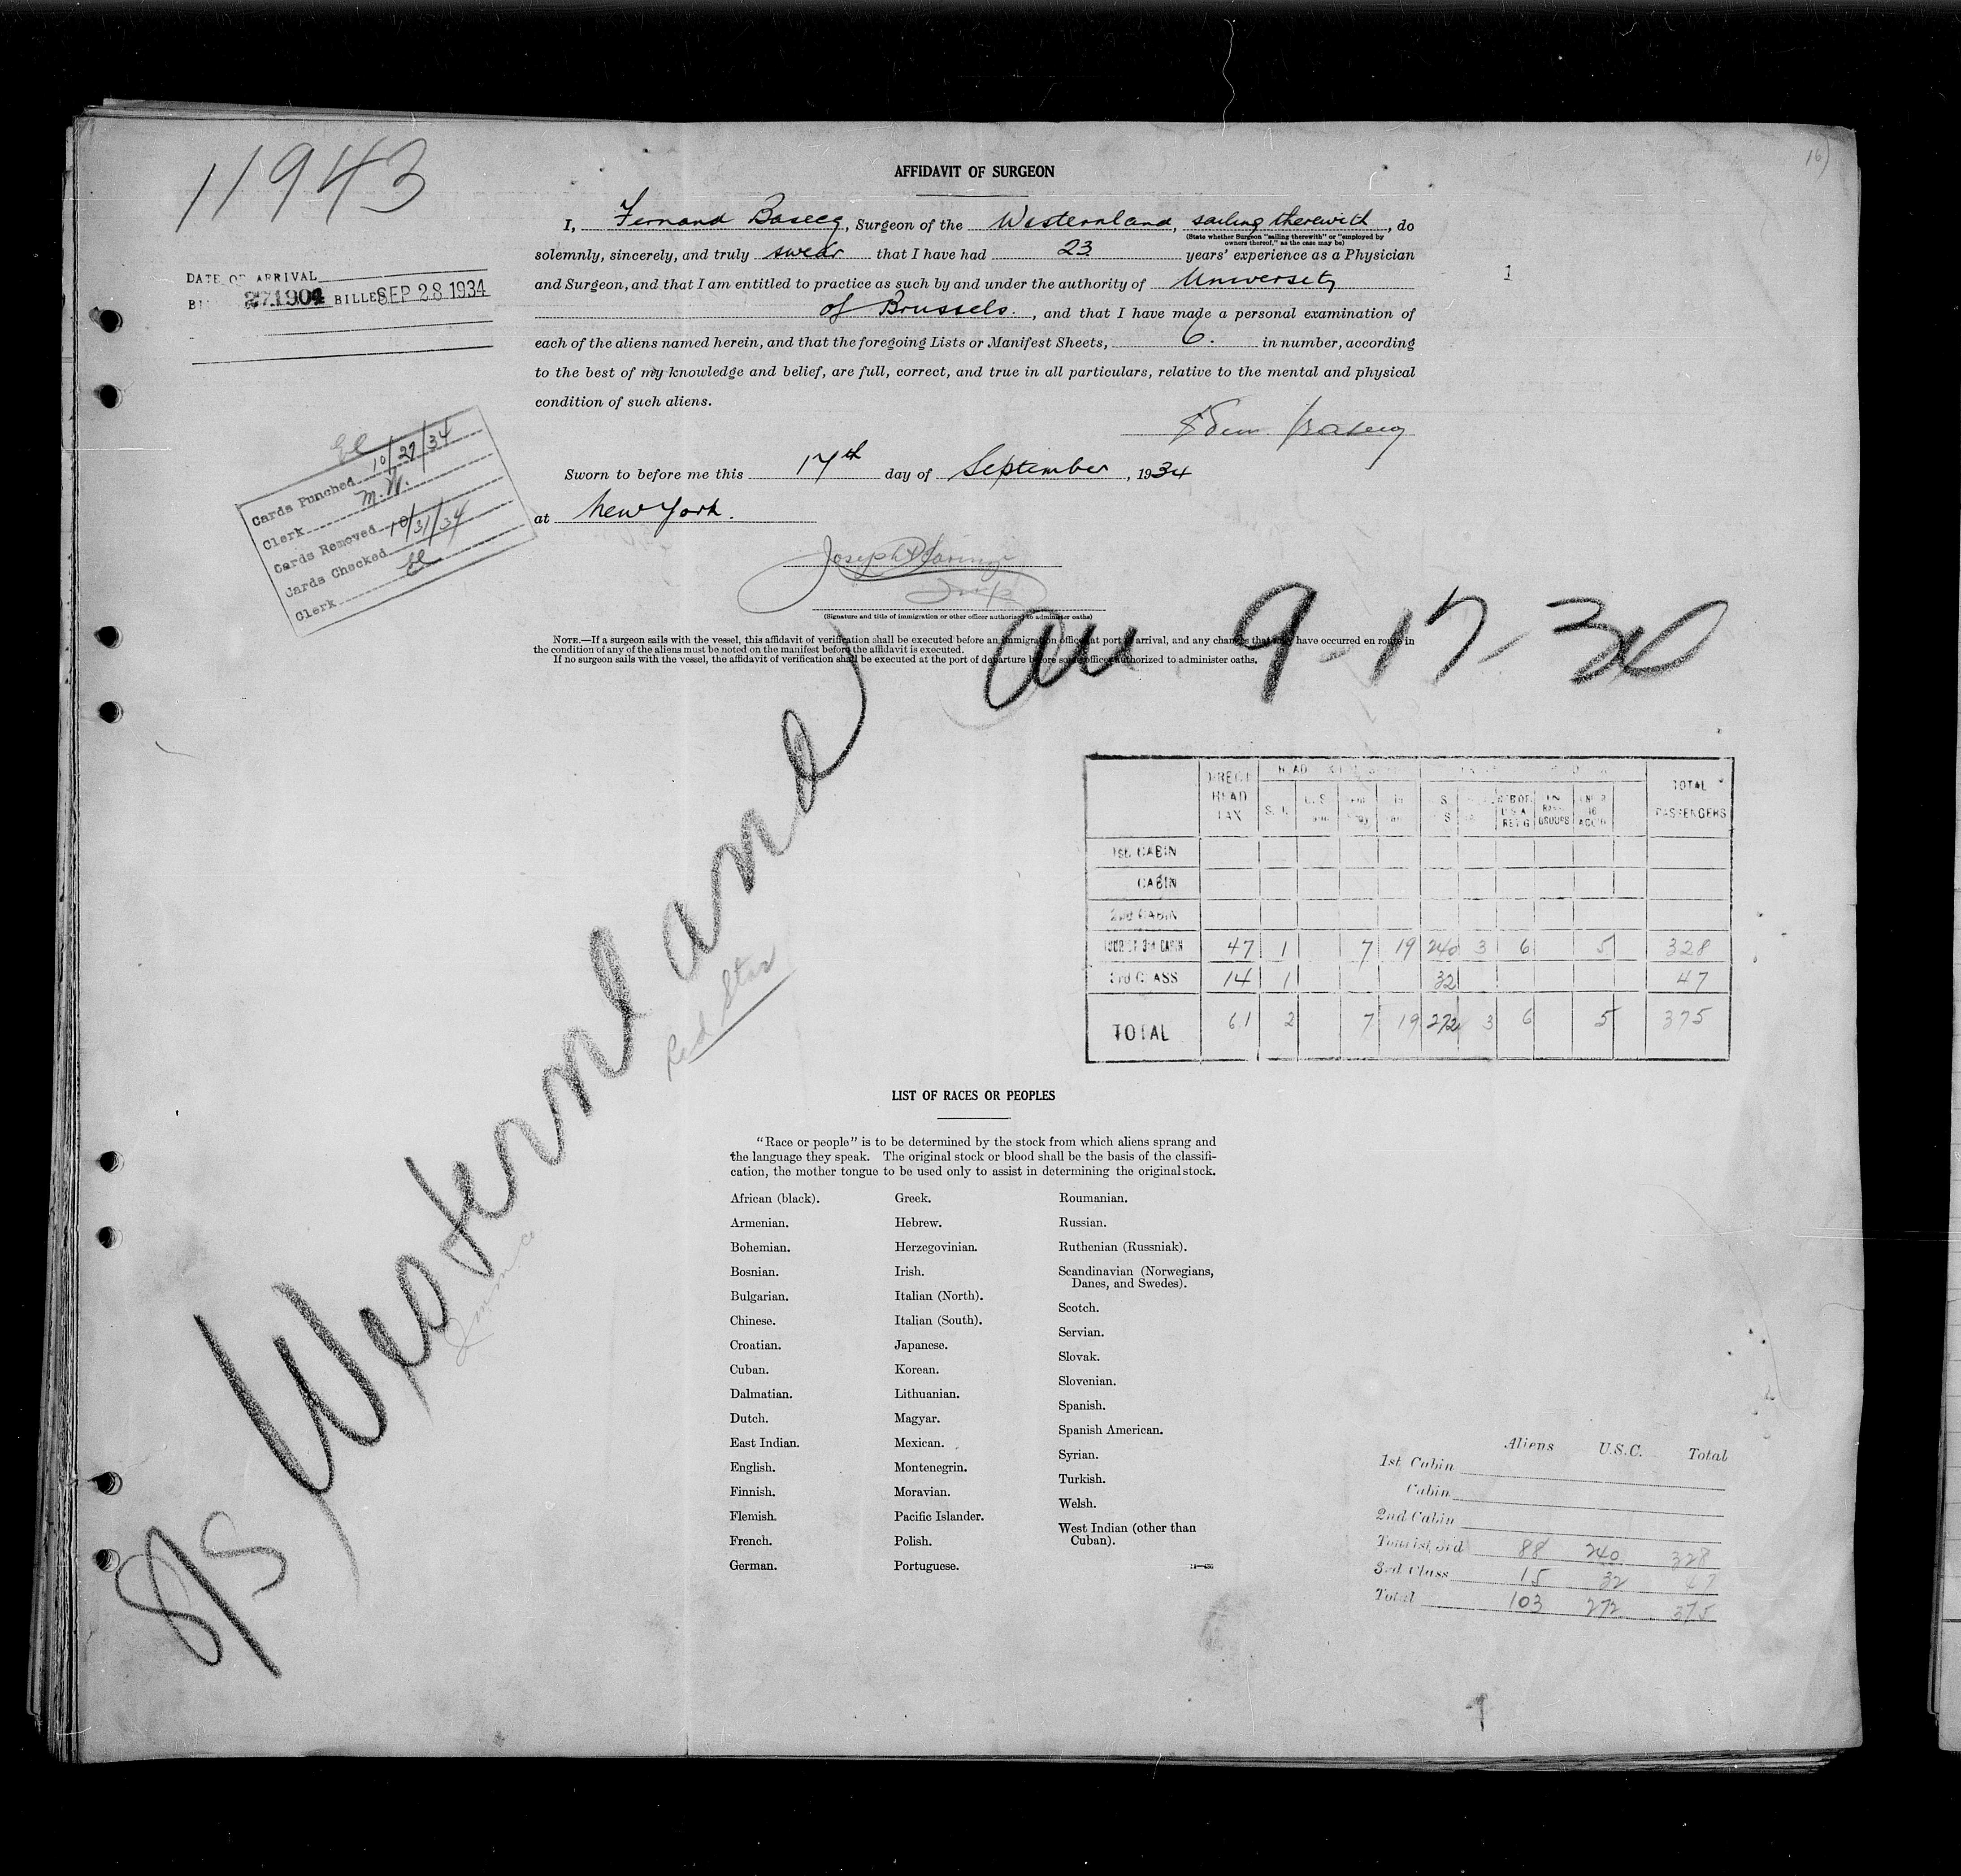 11943
16)
AFFIDAVIT OF SURGEON
I, Fernand Basecq, Surgeon of the Westernland, sailing therewith, do
(State whether Surgeon "sailing therewith" or "employed by
owners thereof," as the case may be)
solemnly, sincerely, and truly swear that I have had 23 years' experience as a Physician
and Surgeon, and that I am entitled to practice as such by and under the authority of University
of Brussels., and that I have made a personal examination of
each of the aliens named herein, and that the foregoing Lists or Manifest Sheets, 6. in number, according
to the best of my knowledge and belief, are full, correct, and true in all particulars, relative to the mental and physical
condition of such aliens.
1
DATE OF ARRIVAL
271904 BILLED SEP 28 1934
Sworn to before me this 17th day of September, 1934
at New York.
Cards Punched 10/27/34
Clerk M.W.
Cards Removed 10/31/34
Cards Checked
Clerk
Joseph
(Signature and title of immigration or other officer authorized to administer oaths)
NOTE.—If a surgeon sails with the vessel, this affidavit of verification shall be executed before an immigration officer at port of arrival, and any changes that may have occurred en route in
the condition of any of the aliens must be noted on the manifest before the affidavit is executed.
If no surgeon sails with the vessel, the affidavit of verification shall be executed at the port of departure before some officer authorized to administer oaths.
9-17-34
S/S Westernland
Red Star
DIRECT HEAD TAX
TOTAL PASSENGERS
1st CABIN
CABIN
2nd CABIN
3rd CABIN 47 1 7 19 240 3 6 5 328
3rd CLASS 14 1 32 47
TOTAL 61 2 7 19 272 3 6 5 375
LIST OF RACES OR PEOPLES
"Race or people" is to be determined by the stock from which aliens sprang and
the language they speak. The original stock or blood shall be the basis of the classifi-
cation, the mother tongue to be used only to assist in determining the original stock.
African (black).
Armenian.
Bohemian.
Bosnian.
Bulgarian.
Chinese.
Croatian.
Cuban.
Dalmatian.
Dutch.
East Indian.
English.
Finnish.
Flemish.
French.
German.
Greek.
Hebrew.
Herzegovinian.
Irish.
Italian (North).
Italian (South).
Japanese.
Korean.
Lithuanian.
Magyar.
Mexican.
Montenegrin.
Moravian.
Pacific Islander.
Polish.
Portuguese.
Roumanian.
Russian.
Ruthenian (Russniak).
Scandinavian (Norwegians,
Danes, and Swedes).
Scotch.
Servian.
Slovak.
Slovenian.
Spanish.
Spanish American.
Syrian.
Turkish.
Welsh.
West Indian (other than
Cuban).
Aliens U.S.C. Total
1st Cabin
Cabin
2nd Cabin
Tourist 3rd 88 240 328
3rd Class 15 32 47
Total 103 272 375